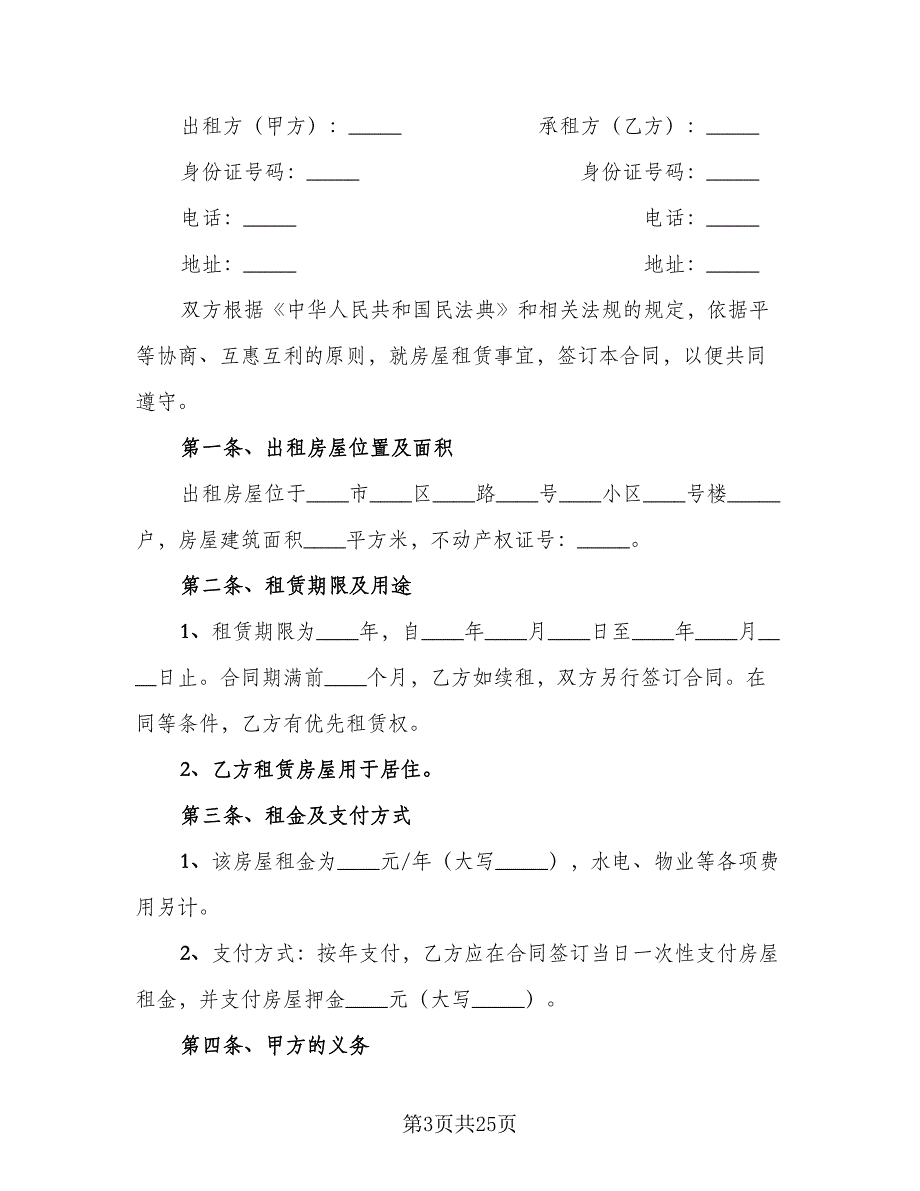 出租方（甲方）：_____ 承租方（乙方）：_____
身份证号码：_____ 身份证号码：_____
电话：_____ 电话：_____
地址：_____ 地址：_____
双方根据《中华人民共和国民法典》和相关法规的规定，依据平
等协商、互惠互利的原则，就房屋租赁事宜，签订本合同，以便共同
遵守。
第一条、出租房屋位置及面积
出租房屋位于____市____区____路____号____小区____号楼_____
户，房屋建筑面积____平方米，不动产权证号：_____。
第二条、租赁期限及用途
1、租赁期限为____年，自____年____月____日至____年____月__
__日止。合同期满前____个月，乙方如续租，双方另行签订合同。在
同等条件，乙方有优先租赁权。
2、乙方租赁房屋用于居住。
第三条、租金及支付方式
1、该房屋租金为____元/年（大写_____），水电、物业等各项费
用另计。
2、支付方式：按年支付，乙方应在合同签订当日一次性支付房屋
租金，并支付房屋押金____元（大写_____）。
第四条、甲方的义务
第3页共25页